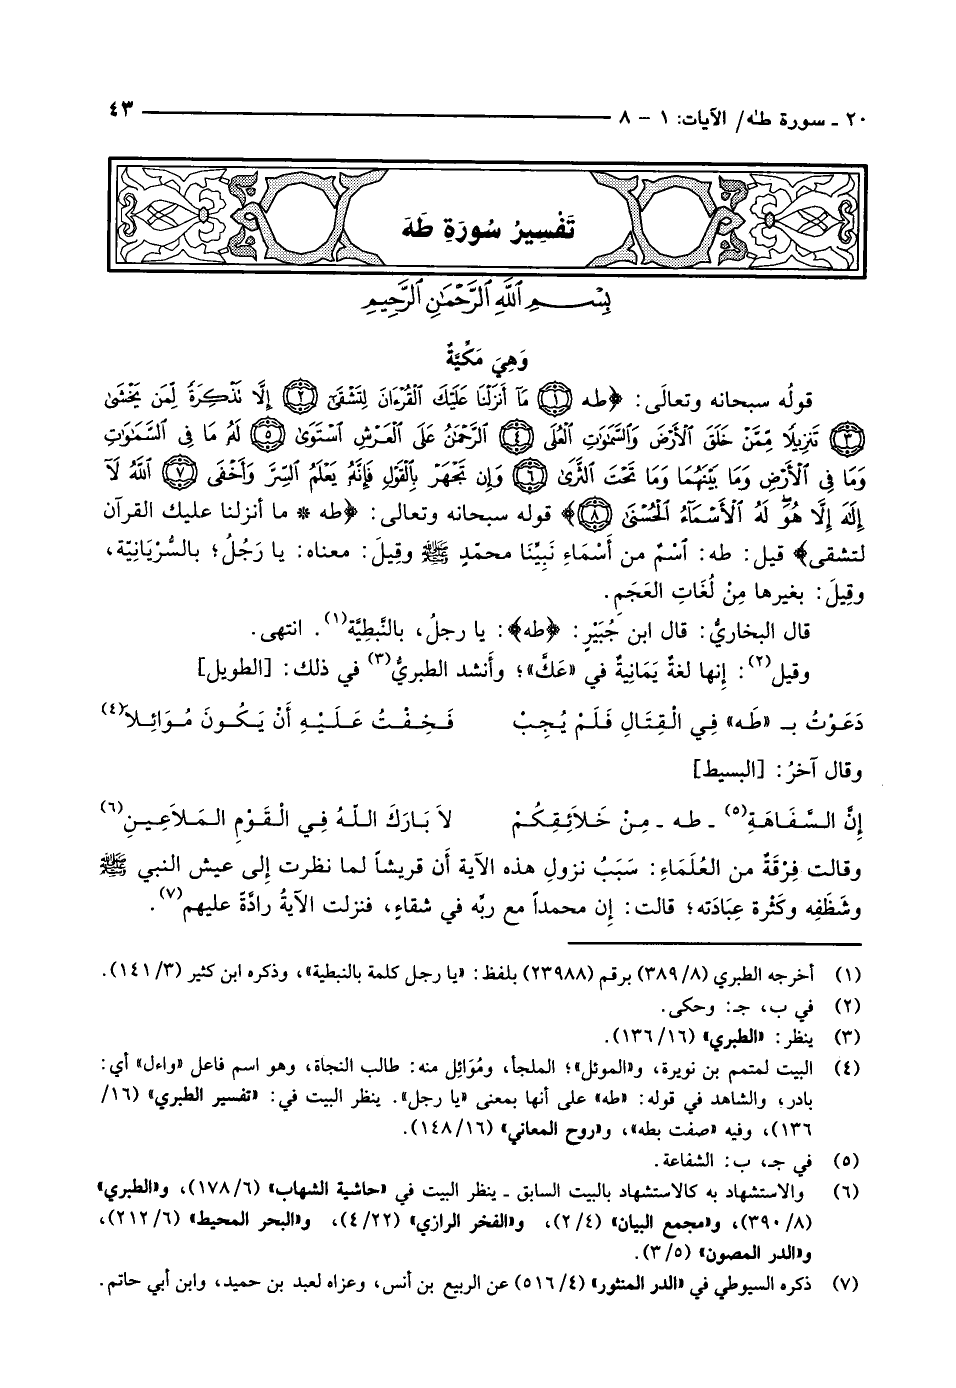 ٢٠ ـ سورة طـٰه/ الآيات: ١ - ٨
٤٣
تَفْسِيرُ سُورَةِ طَهَ
بِسْمِ اللَّهِ الرَّحْمَٰنِ الرَّحِيمِ
وَهِيَ مَكِّيَّةٌ
قولُه سبحانه وتعالَى: ﴿طه ۝١ مَآ أَنزَلْنَا عَلَيْكَ ٱلْقُرْءَانَ لِتَشْقَىٰٓ ۝٢ إِلَّا تَذْكِرَةً لِّمَن يَخْشَىٰ
۝٣ تَنزِيلًا مِّمَّنْ خَلَقَ ٱلْأَرْضَ وَٱلسَّمَٰوَٰتِ ٱلْعُلَى ۝٤ ٱلرَّحْمَٰنُ عَلَى ٱلْعَرْشِ ٱسْتَوَىٰ ۝٥ لَهُۥ مَا فِى ٱلسَّمَٰوَٰتِ
وَمَا فِى ٱلْأَرْضِ وَمَا بَيْنَهُمَا وَمَا تَحْتَ ٱلثَّرَىٰ ۝٦ وَإِن تَجْهَرْ بِٱلْقَوْلِ فَإِنَّهُۥ يَعْلَمُ ٱلسِّرَّ وَأَخْفَى ۝٧ ٱللَّهُ لَآ
إِلَٰهَ إِلَّا هُوَۖ لَهُ ٱلْأَسْمَآءُ ٱلْحُسْنَىٰ ۝٨﴾ قوله سبحانه وتعالى: ﴿طه * ما أنزلنا عليك القرآن
لتشقى﴾ قيل: طه: ٱسْمٌ من أَسْمَاءِ نَبِيِّنَا محمّدٍ ﷺ وقِيلَ: معناه: يا رَجُلُ؛ بالسُّرْيَانِيّة،
وقِيلَ: بغيرها مِنْ لُغَاتِ العَجَمِ.
قال البخاريُّ: قال ابن جُبَيْرٍ: ﴿طه﴾: يا رجلُ، بالنَّبَطِيَّة(١). انتهى.
وقيل(٢): إنها لغةٌ يَمَانِيةٌ في «عَكَّ»؛ وأَنشد الطبريُّ(٣) في ذلك: [الطويل]
دَعَوْتُ بـ «طَه» فِي الْقِتَالِ فَلَمْ يُجِبْ فَخِفْتُ عَلَيْهِ أَنْ يَكُونَ مُوَائِلاَ(٤)
وقال آخرُ: [البسيط]
إِنَّ السَّفَاهَةَ(٥) ـ طه ـ مِنْ خَلاَئِقِكُمْ لاَ بَارَكَ اللَّهُ فِي الْقَوْمِ المَلاَعِينِ(٦)
وقالت فِرْقَةٌ من العُلَمَاءِ: سَبَبُ نزولِ هذه الآية أن قريشاً لما نظرت إلى عيش النبي ﷺ
وشَظَفِه وكَثْرة عِبَادَته؛ قالت: إن محمداً مع ربِّه في شقاءٍ، فنزلت الآيةُ رادَّةً عليهم(٧).
(١) أخرجه الطبري (٣٨٩/٨) برقم (٢٣٩٨٨) بلفظ: «يا رجل كلمة بالنبطية»، وذكره ابن كثير (١٤١/٣).
(٢) في ب، جـ: وحكى.
(٣) ينظر: «الطبري» (١٣٦/١٦).
(٤) البيت لمتمم بن نويرة، و«الموئل»؛ الملجأ، ومُوَائِل منه: طالب النجاة، وهو اسم فاعل «واءل» أي:
بادر، والشاهد في قوله: «طه» على أنها بمعنى «يا رجل». ينظر البيت في: «تفسير الطبري» (١٦/
١٣٦)، وفيه «صفت بطه»، و«روح المعاني» (١٤٨/١٦).
(٥) في جـ، ب: الشفاعة.
(٦) والاستشهاد به كالاستشهاد بالبيت السابق ـ ينظر البيت في «حاشية الشهاب» (١٧٨/٦)، و«الطبري»
(٣٩٠/٨)، و«مجمع البيان» (٢/٤)، و«الفخر الرازي» (٤/٢٢)، و«البحر المحيط» (٢١٢/٦)،
و«الدر المصون» (٣/٥).
(٧) ذكره السيوطي في «الدر المنثور» (٥١٦/٤) عن الربيع بن أنس، وعزاه لعبد بن حميد، وابن أبي حاتم.